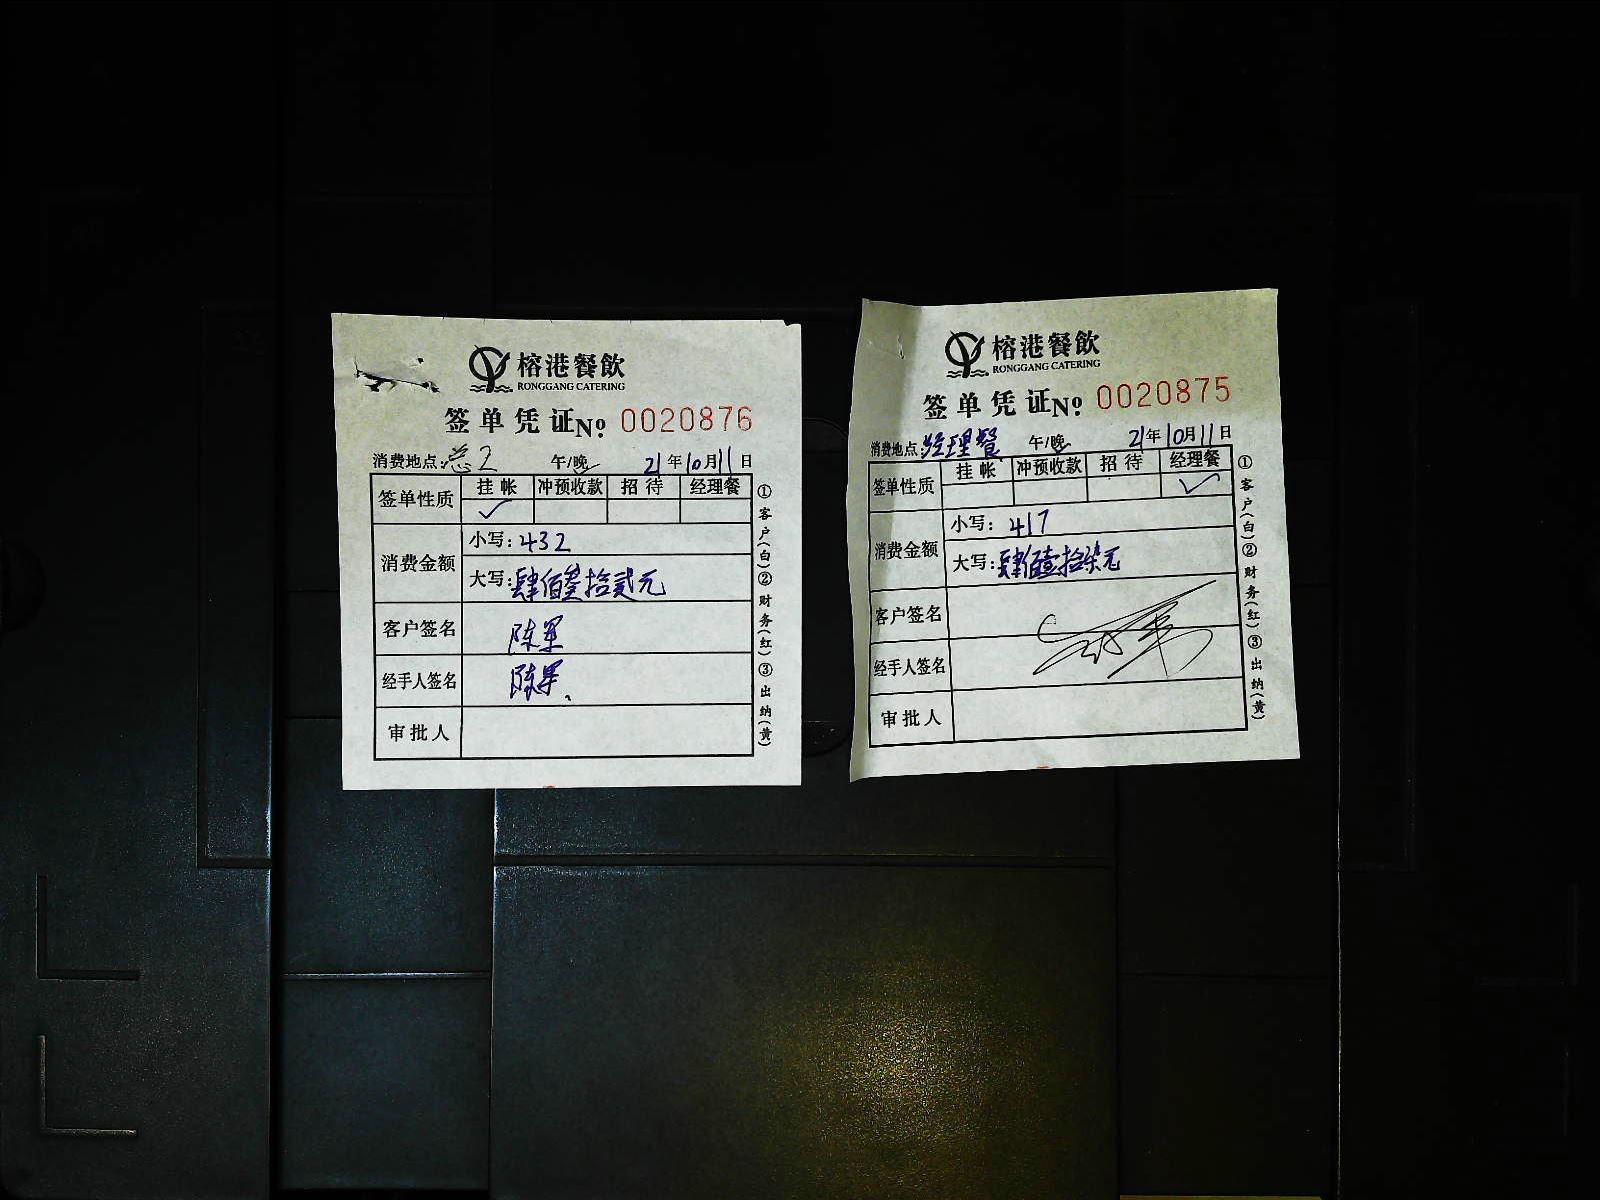 榕港餐飲
RONGGANG CATERING
签单凭证No. 0020876
消费地点:总2 午/晚 21年10月11日
签单性质 挂帐 冲预收款 招待 经理餐
✓
消费金额 小写:432
大写:肆佰叁拾贰元
客户签名 陈军
经手人签名 陈军
审批人
①客户(白)②财务(红)③出纳(黄)
榕港餐飲
RONGGANG CATERING
签单凭证No. 0020875
消费地点:经理餐 午/晚 21年10月11日
签单性质 挂帐 冲预收款 招待 经理餐
✓
消费金额 小写:417
大写:肆佰壹拾柒元
客户签名
经手人签名
审批人
①客户(白)②财务(红)③出纳(黄)